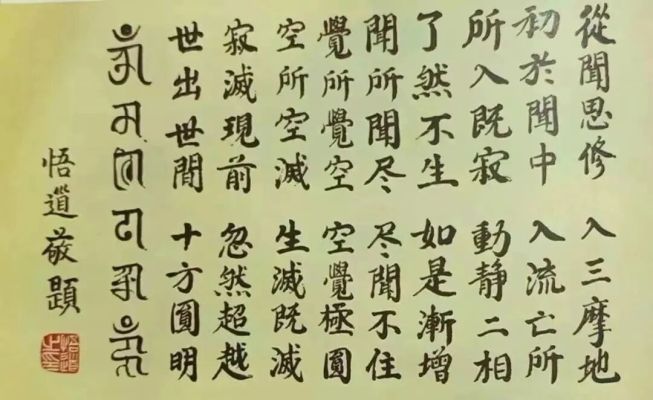 從聞思修 入三摩地
初於聞中 入流亡所
所入既寂 動靜二相
了然不生 如是漸增
聞所聞尽 尽聞不住
覺所覺空 空覺極圓
空所空滅 生滅既滅
寂滅現前 忽然超越
世出世間 十方圓明
悟道敬題